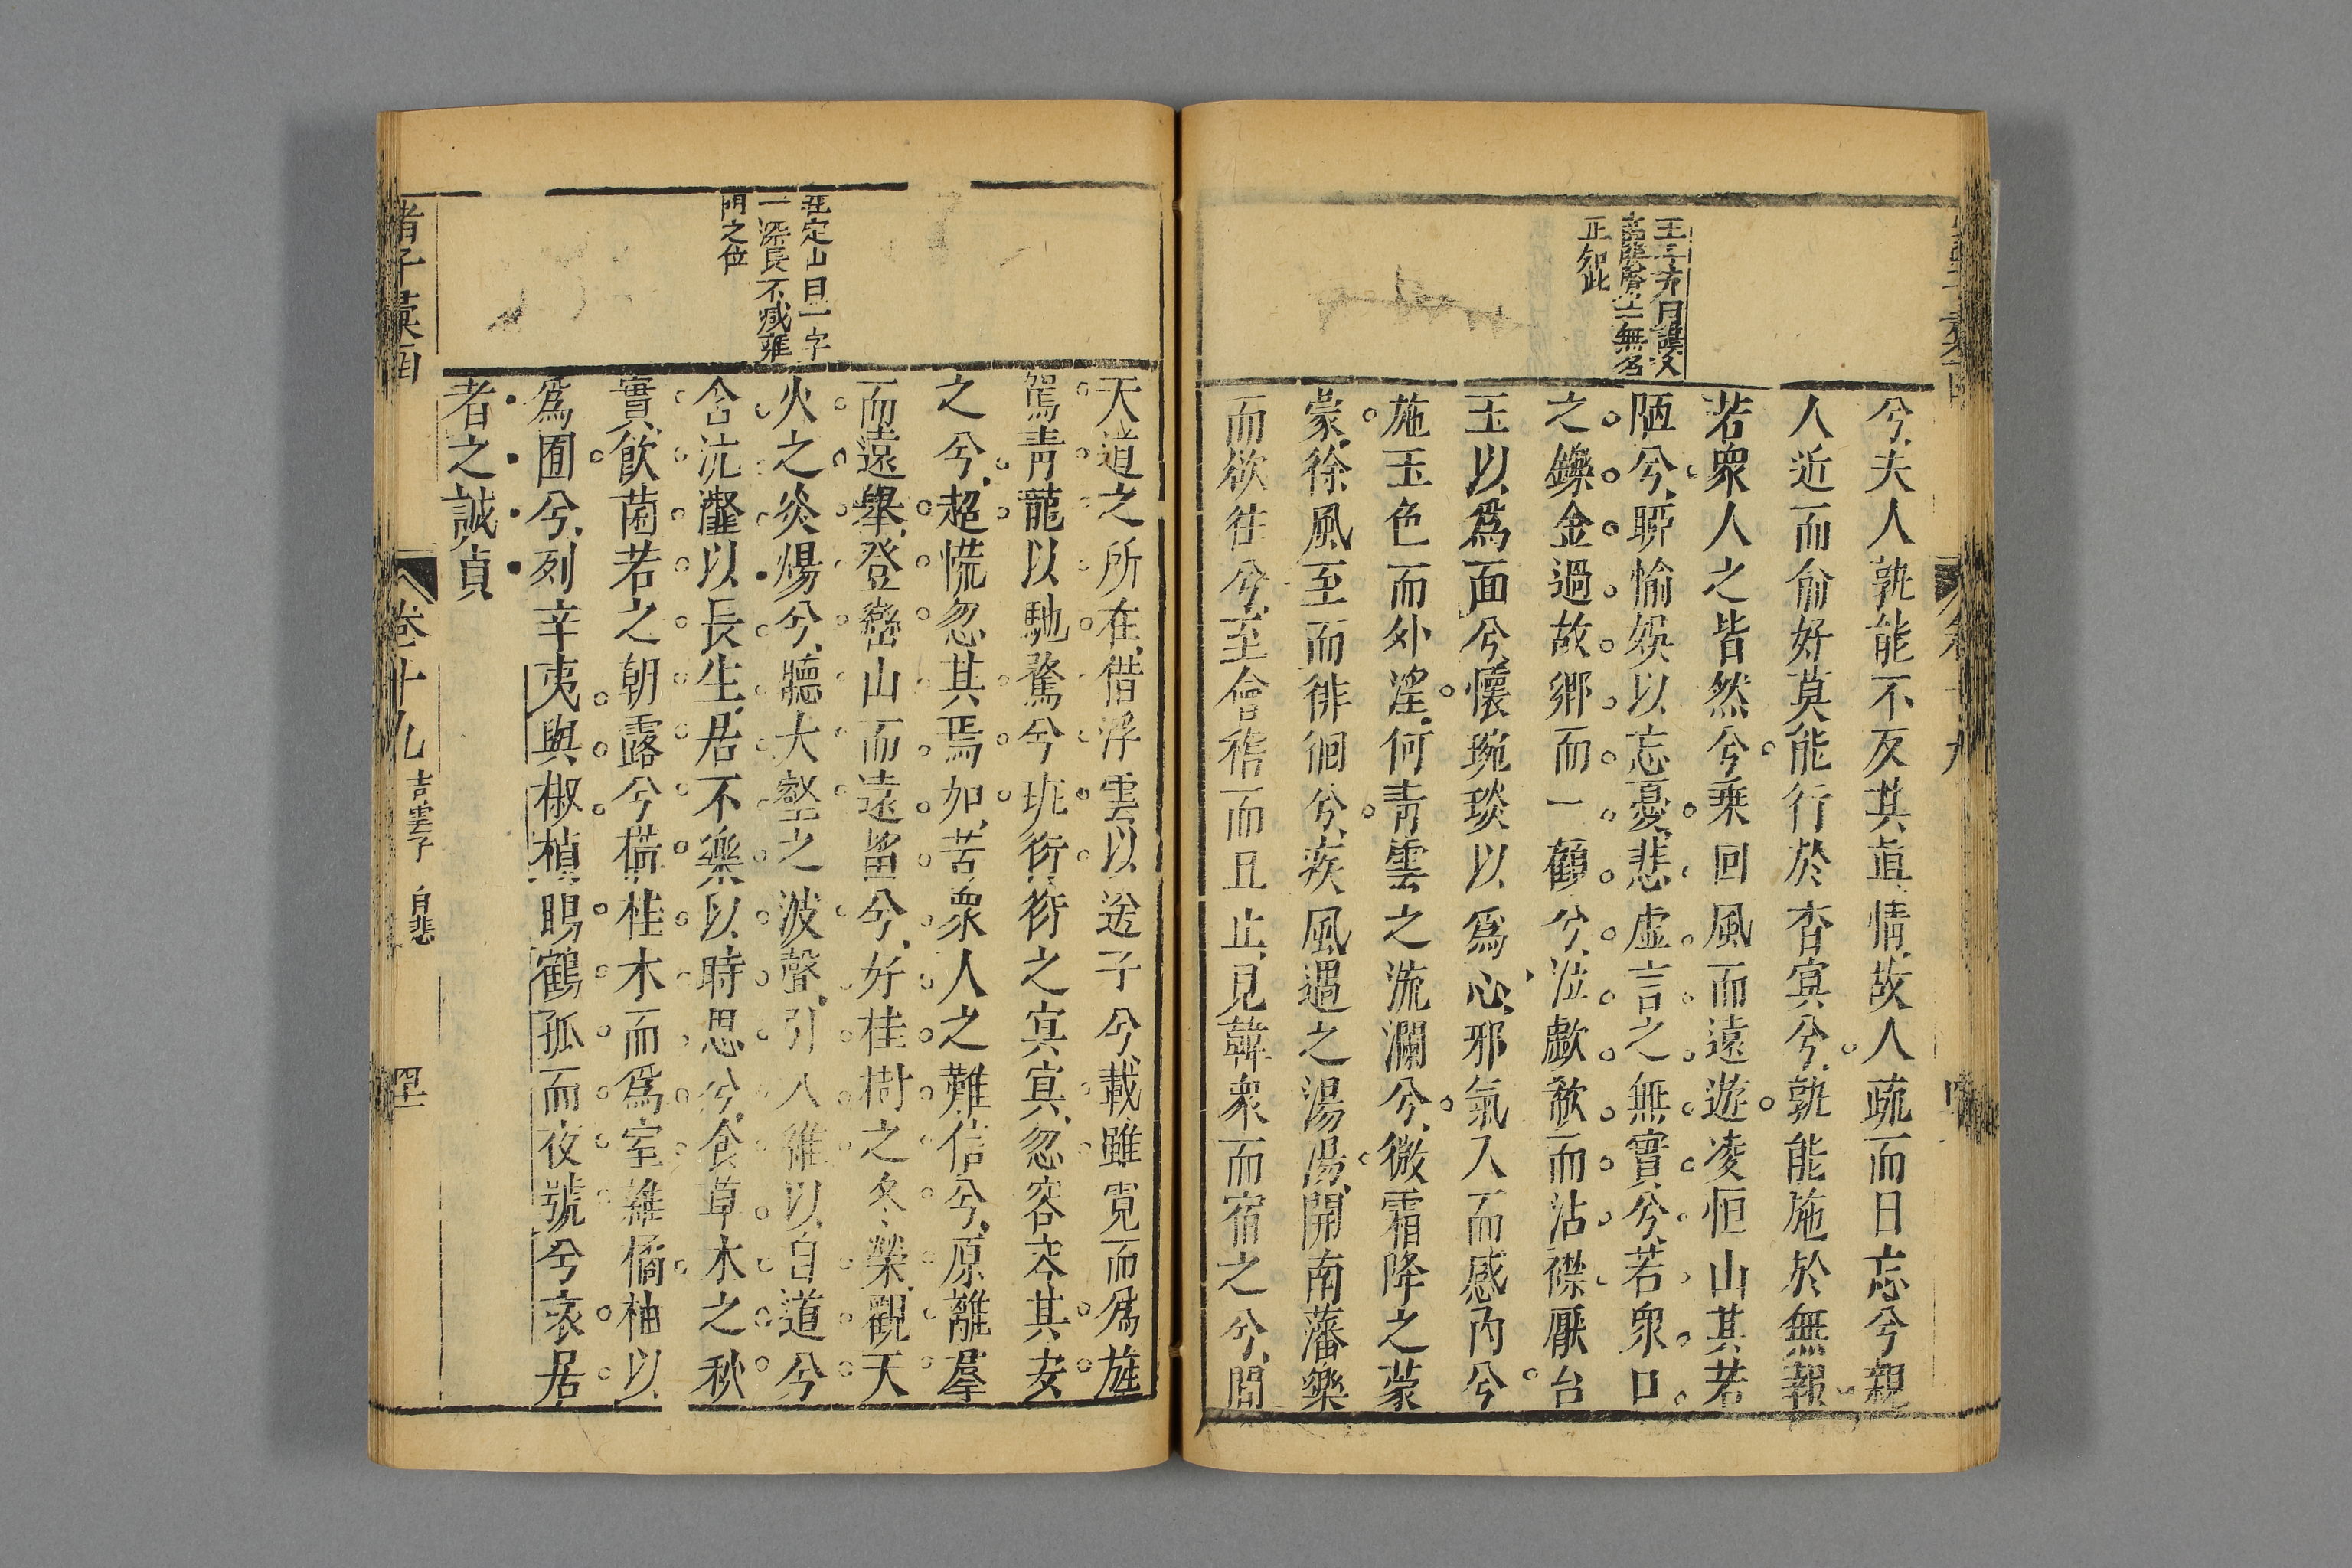 兮夫人孰能不反其眞情故人疏而日忘兮親
人近而俞好莫能行於杳冥兮孰能施於無報
若衆人之皆然兮乗回風而遠遊凌恒山其若
陋兮聊愉娱以忘憂悲虚言之無實兮若衆口
之鑠金過故鄉而一顧兮泣歔欷而沾襟厭白
玉以爲面兮懷琬琰以爲心邪氣入而感内兮
施玉色而外淫何青雲之流瀾兮微霜降之蒙
蒙徐風至而徘徊兮疾風過之湯湯聞南藩樂
而欲徃兮至會稽而且止見韓衆而宿之兮問
正如此
天道之所在借浮雲以送予兮載雌霓而爲旌
駕青龍以馳騖兮班衍衍之冥冥忽容容其安
之兮超慌忽其焉如苦衆人之難信兮原離羣
而遠舉登巒山而遠望兮好桂樹之冬榮觀天
火之炎煬兮聽大壑之波聲引八維以自道兮
含沆瀣以長生居不樂以時思兮食草木之秋
實飲菌若之朝露兮構桂木而爲室雜橘柚以
爲囿兮列辛夷與椒楨鵾鶴孤而夜號兮哀居
者之誠貞
定山曰一字
一深長不减雍
門之位
諸子彚函
卷十九
吉雲子 自悲